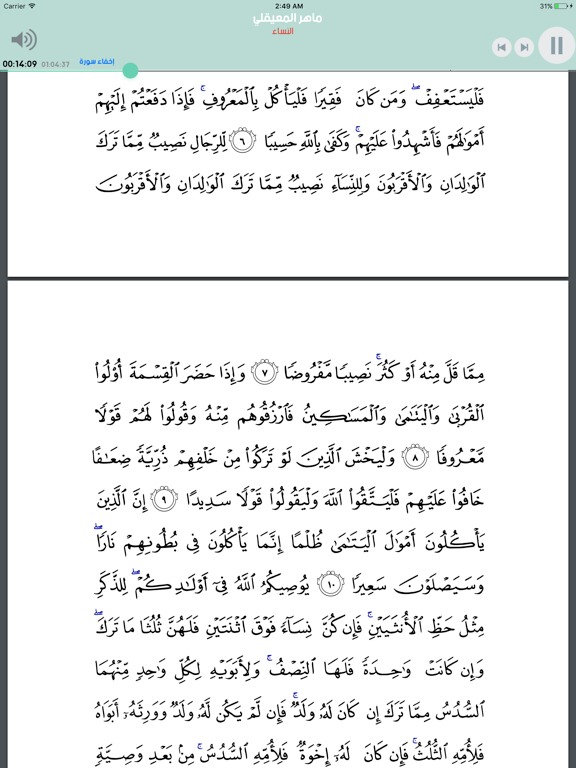 Carrier 2:49 AM 31%
ماهر المعيقلي
النساء
00:14:09 01:04:37 إخفاء سورة
فَلْيَسْتَعْفِفْ ۖ وَمَن كَانَ فَقِيرًا فَلْيَأْكُلْ بِالْمَعْرُوفِ ۚ فَإِذَا دَفَعْتُمْ إِلَيْهِمْ
أَمْوَالَهُمْ فَأَشْهِدُوا عَلَيْهِمْ ۚ وَكَفَىٰ بِاللَّهِ حَسِيبًا ٦ لِّلرِّجَالِ نَصِيبٌ مِّمَّا تَرَكَ
الْوَالِدَانِ وَالْأَقْرَبُونَ وَلِلنِّسَاءِ نَصِيبٌ مِّمَّا تَرَكَ الْوَالِدَانِ وَالْأَقْرَبُونَ
مِمَّا قَلَّ مِنْهُ أَوْ كَثُرَ ۚ نَصِيبًا مَّفْرُوضًا ٧ وَإِذَا حَضَرَ الْقِسْمَةَ أُولُوا
الْقُرْبَىٰ وَالْيَتَامَىٰ وَالْمَسَاكِينُ فَارْزُقُوهُم مِّنْهُ وَقُولُوا لَهُمْ قَوْلًا
مَّعْرُوفًا ٨ وَلْيَخْشَ الَّذِينَ لَوْ تَرَكُوا مِنْ خَلْفِهِمْ ذُرِّيَّةً ضِعَافًا
خَافُوا عَلَيْهِمْ فَلْيَتَّقُوا اللَّهَ وَلْيَقُولُوا قَوْلًا سَدِيدًا ٩ إِنَّ الَّذِينَ
يَأْكُلُونَ أَمْوَالَ الْيَتَامَىٰ ظُلْمًا إِنَّمَا يَأْكُلُونَ فِي بُطُونِهِمْ نَارًا ۖ
وَسَيَصْلَوْنَ سَعِيرًا ١٠ يُوصِيكُمُ اللَّهُ فِي أَوْلَادِكُمْ ۖ لِلذَّكَرِ
مِثْلُ حَظِّ الْأُنثَيَيْنِ ۚ فَإِن كُنَّ نِسَاءً فَوْقَ اثْنَتَيْنِ فَلَهُنَّ ثُلُثَا مَا تَرَكَ ۖ
وَإِن كَانَتْ وَاحِدَةً فَلَهَا النِّصْفُ ۚ وَلِأَبَوَيْهِ لِكُلِّ وَاحِدٍ مِّنْهُمَا
السُّدُسُ مِمَّا تَرَكَ إِن كَانَ لَهُ وَلَدٌ ۚ فَإِن لَّمْ يَكُن لَّهُ وَلَدٌ وَوَرِثَهُ أَبَوَاهُ
فَلِأُمِّهِ الثُّلُثُ ۚ فَإِن كَانَ لَهُ إِخْوَةٌ فَلِأُمِّهِ السُّدُسُ ۚ مِن بَعْدِ وَصِيَّةٍ